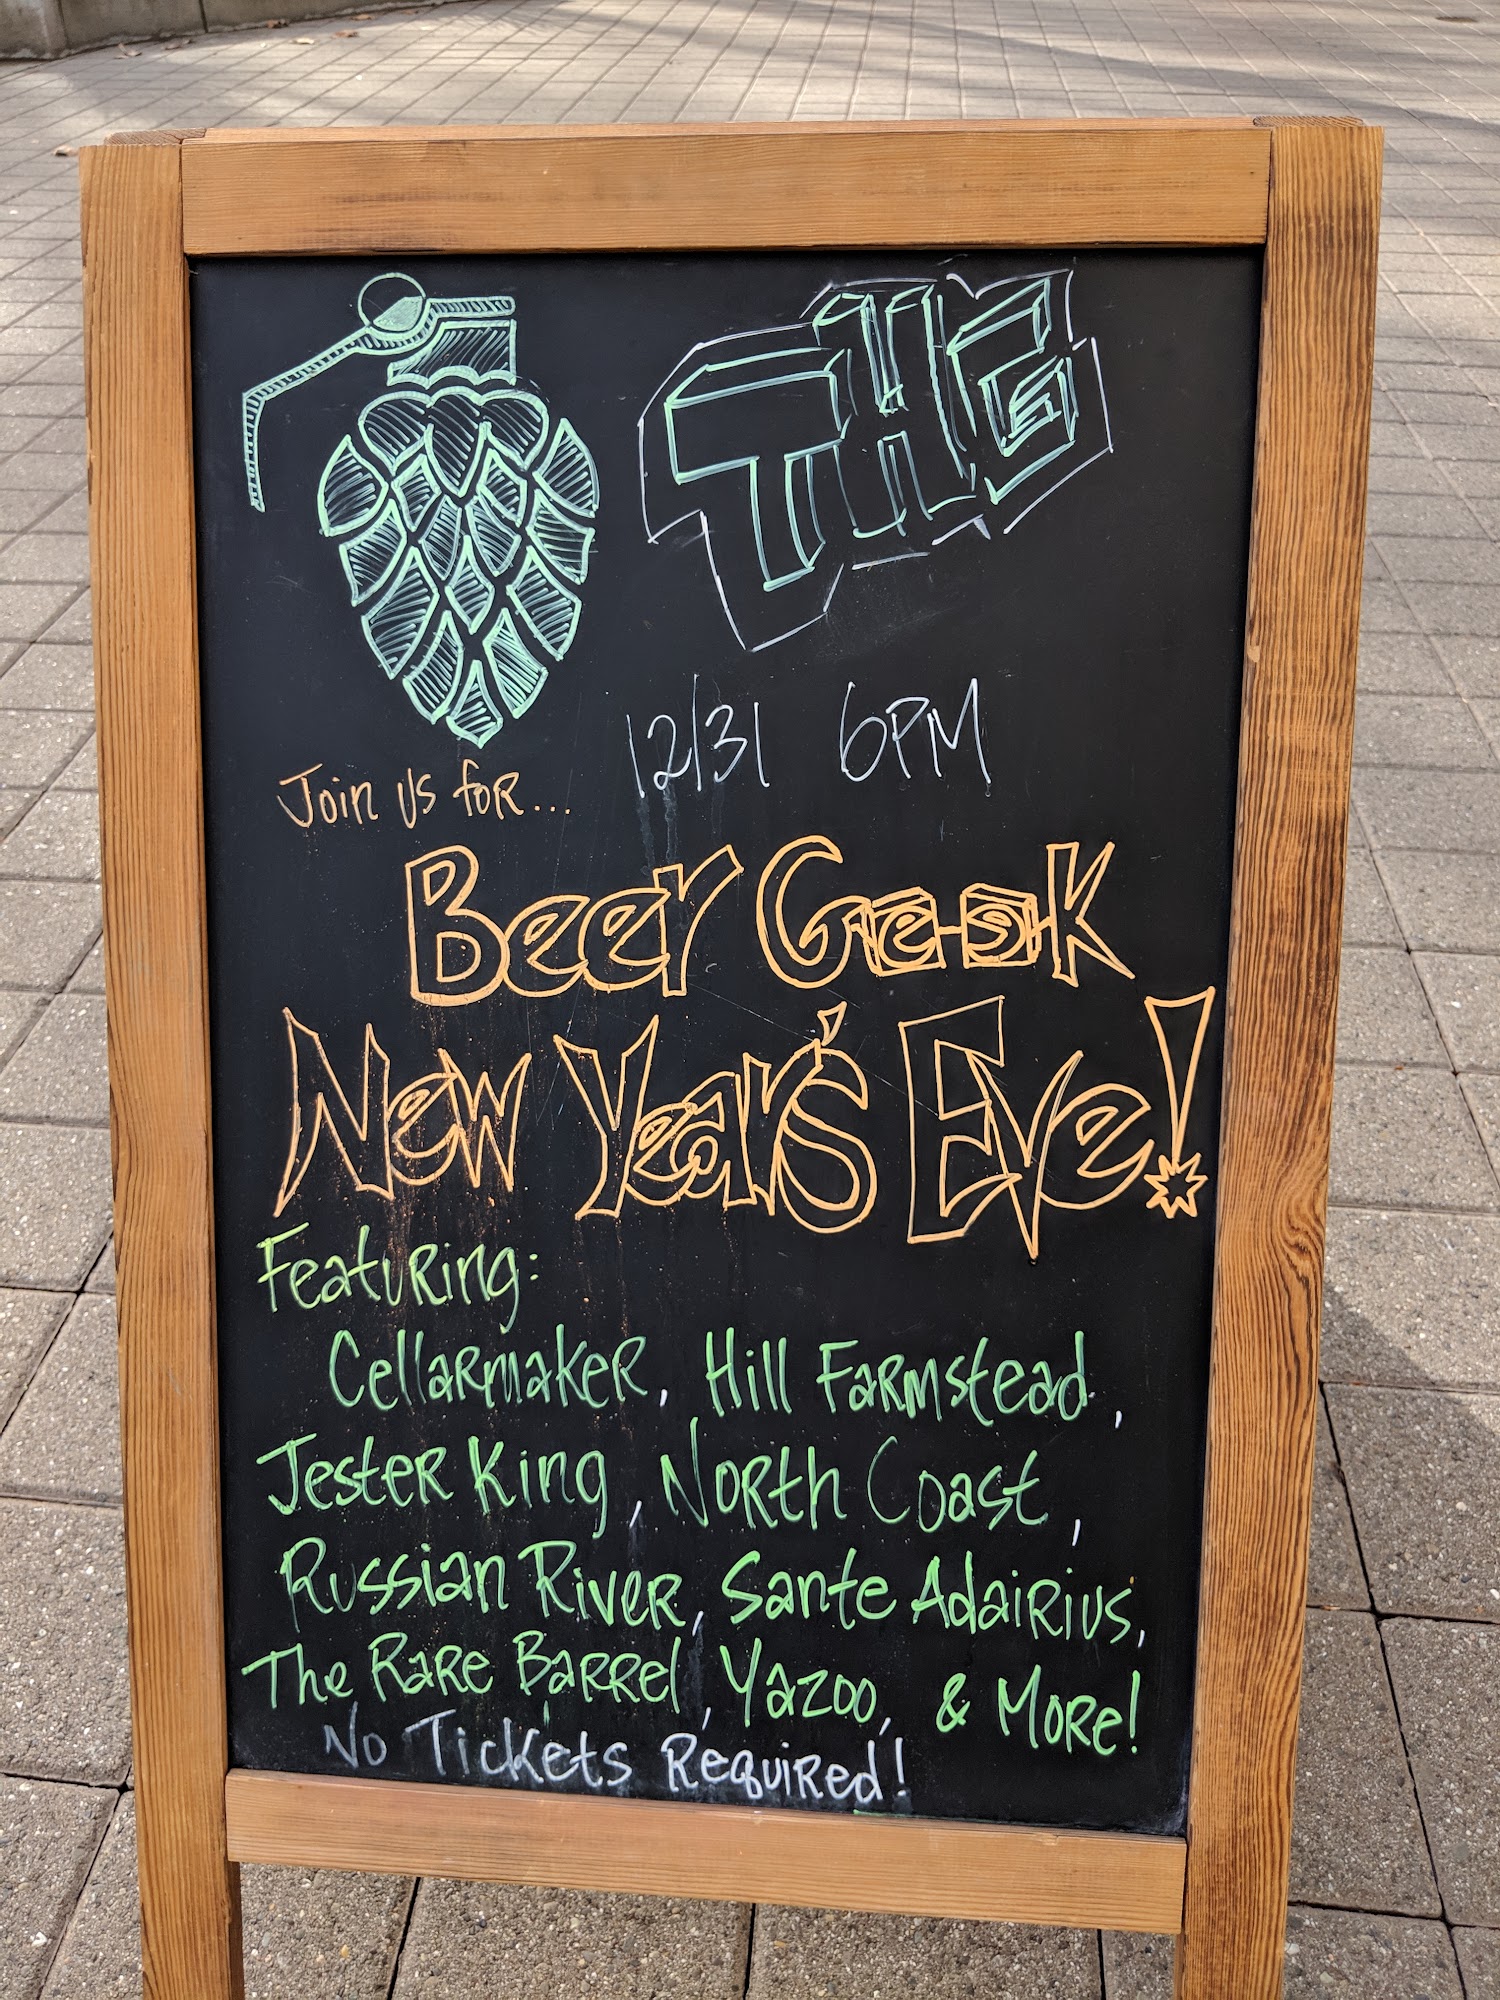 THE
12/31 6PM
Join us for...
Beer Geek
New Year's Eve!
Featuring:
Cellarmaker, Hill Farmstead,
Jester King, North Coast,
Russian River, Sante Adairius,
The Rare Barrel, Yazoo, & More!
No Tickets Required!